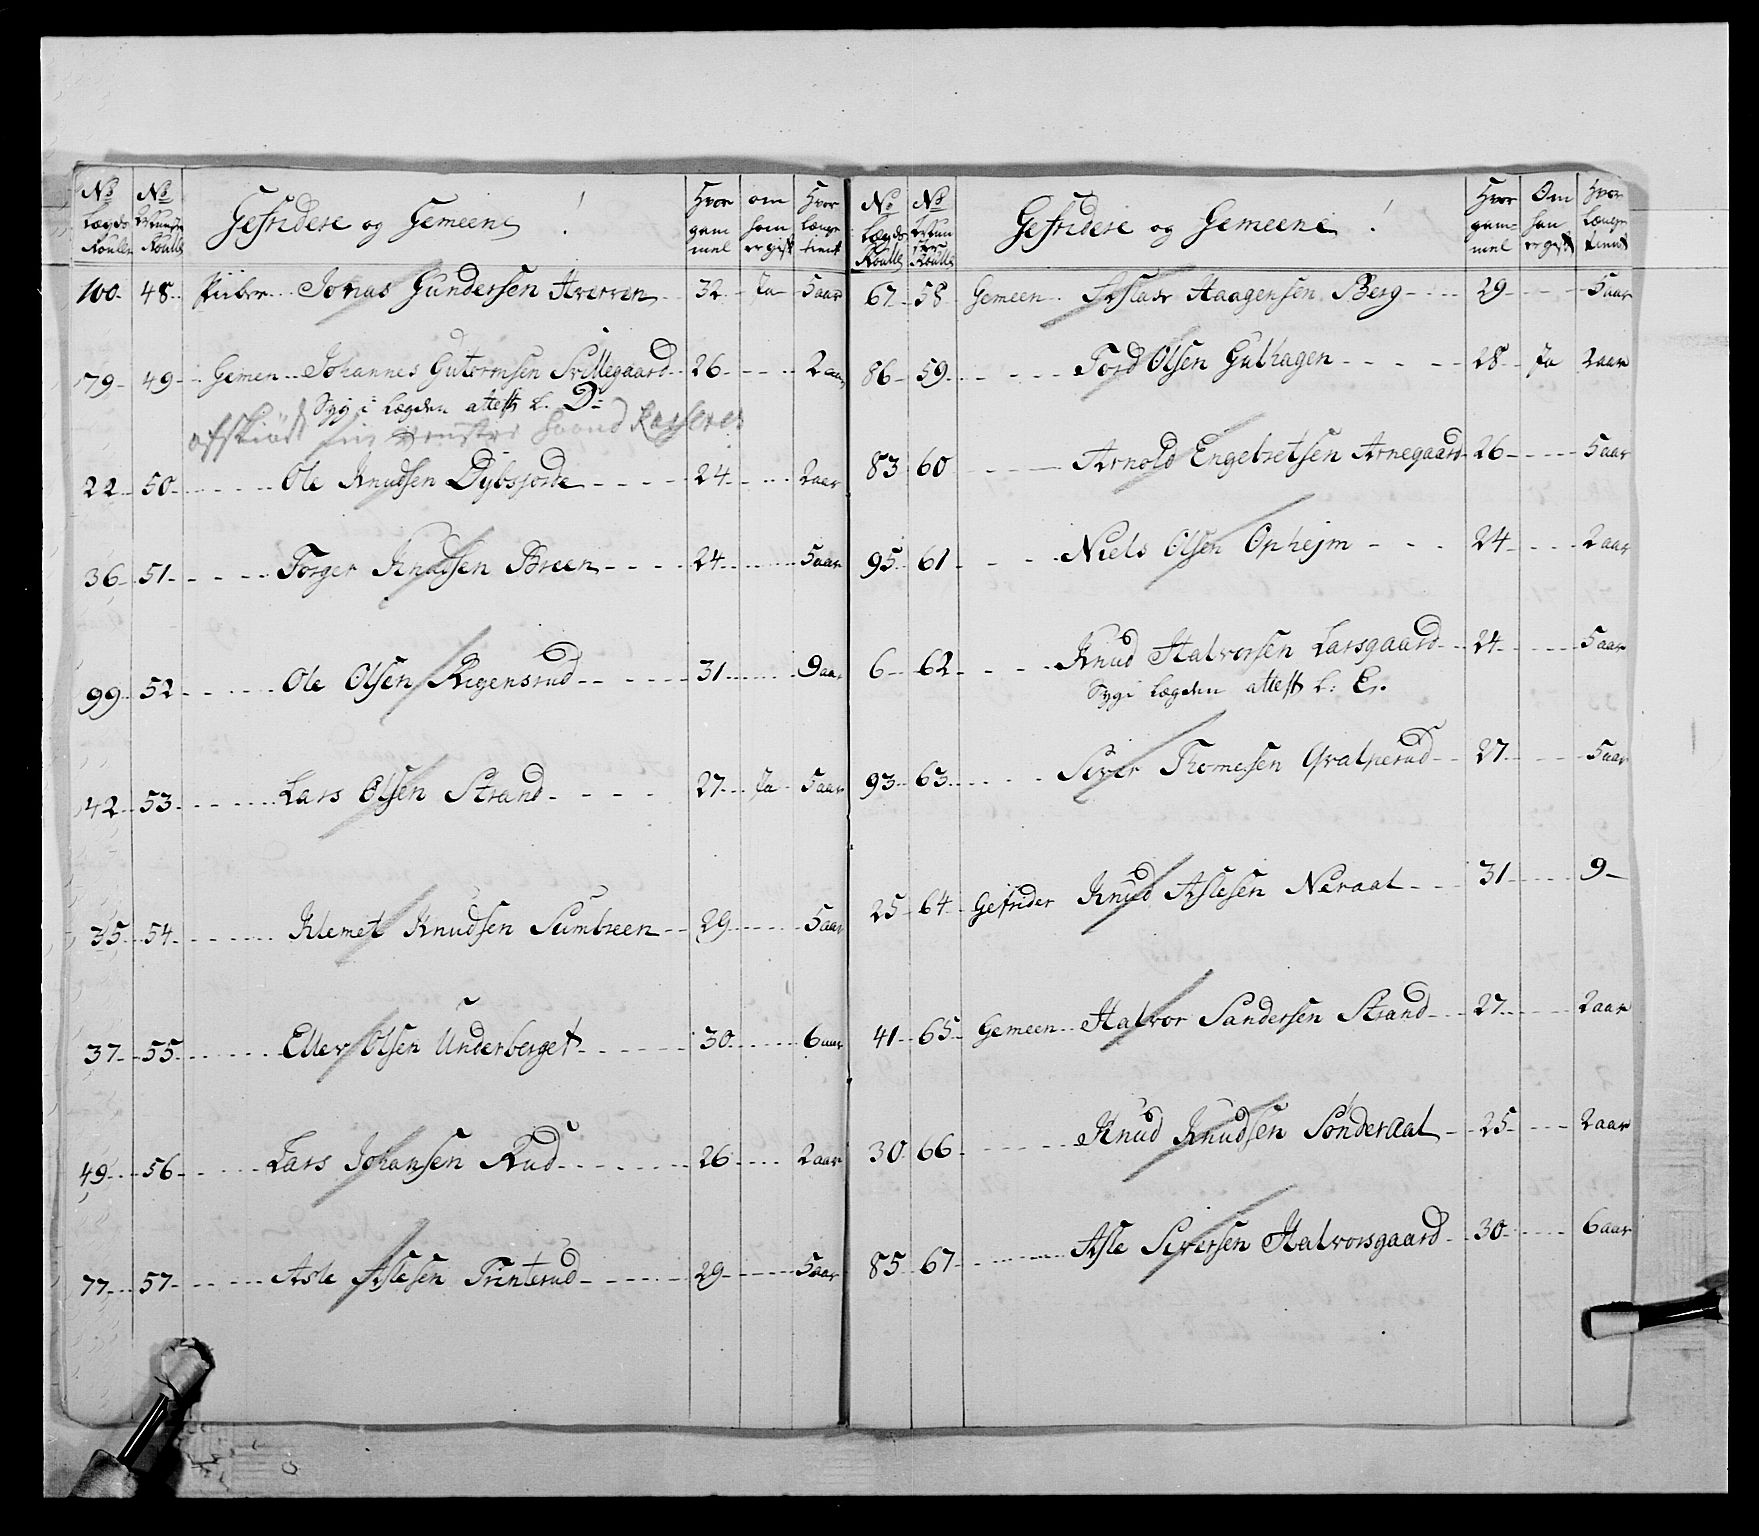 No Lægds Roullen
No Roulle
Gefridere og Gemeene !
Hvor gammel
om ham er gift
Hvor længe tient
100 48 Piiber Jonas Gundersen 32 Ja 5 aar
79 49 Gemen Johannes Gutormsen Villegaard 26 2 aar
Syg i Lægden attest L. D:
afskiæd venstre haand
22 50 Ole Knudsen Dybsjorde 24 2 aar
36 51 Torger Knudsen Breen 24 5 aar
99 52 Ole Olsen Rigensrud 31 9 aar
42 53 Lars Olsen Strand 27 Ja 5 aar
35 54 Klemet Knudsen Sumbreen 29 5 aar
37 55 Ellev Olsen Underberget 30 6 aar
49 56 Lars Johansen Rud 26 2 aar
77 57 Asle Aslesen Trinterud 29 5 aar
No Lægds Roulle
No Roulle
Gefridere og Gemeene !
Hvor gammel
Om han er gift
Hvor Længe tient
67 58 Gemeen Aslak Haagensen Berg 29 5 aar
86 59 Tord Olsen Gulhagen 28 Ja 2 aar
83 60 Arnold Engebretsen Arnegaard 26 5 aar
95 61 Niels Olsen Ophejm 24 2 aar
6 62 Knud Halvorsen Larsgaard 24 5 aar
Syg i Lægden attest L: E.
93 63 Siver Thomesen Qvalperud 27 5 aar
25 64 Gefrider Knud Aslesen Neraal 31 9
41 65 Gemeen Halvor Sandersen Strand 27 2 aar
30 66 Knud Knudsen Sønderaal 25 2 aar
85 67 Asle Siversen Halvorsgaard 30 6 aar